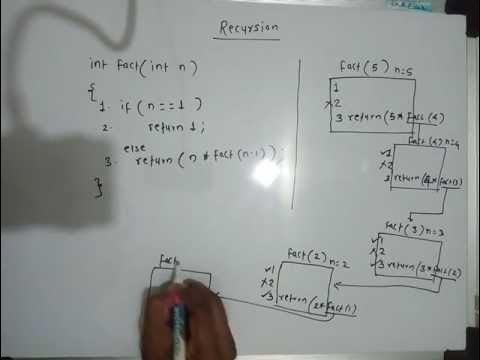 Recursion
int fact(int n)
{
1. if (n==1)
2. return 1;
else
3. return (n * fact(n-1));
}
fact(5) n=5
1
×2
3 return(5* fact(4)
fact(4) n=4
✓1
×2
3 return(4* fact(3)
fact(3) n=3
✓1
×2
✓3 return(3* fact(2)
fact(2) n=2
✓1
×2
✓3 return(2* fact(1)
fact